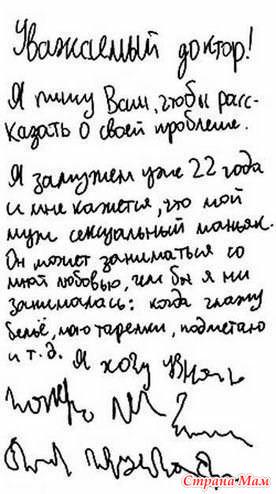 Уважаемый доктор!
Я пишу Вам, чтобы расс-
казать о своей проблеме.
Я замужем уже 22 года
и мне кажется, что мой
муж сексуальный маньяк.
Он может заниматься со
мной любовью, чем бы я ни
занималась: когда глажу
бельё, мою тарелки, подметаю
и т.д. Я хочу узнать
Страна Мам